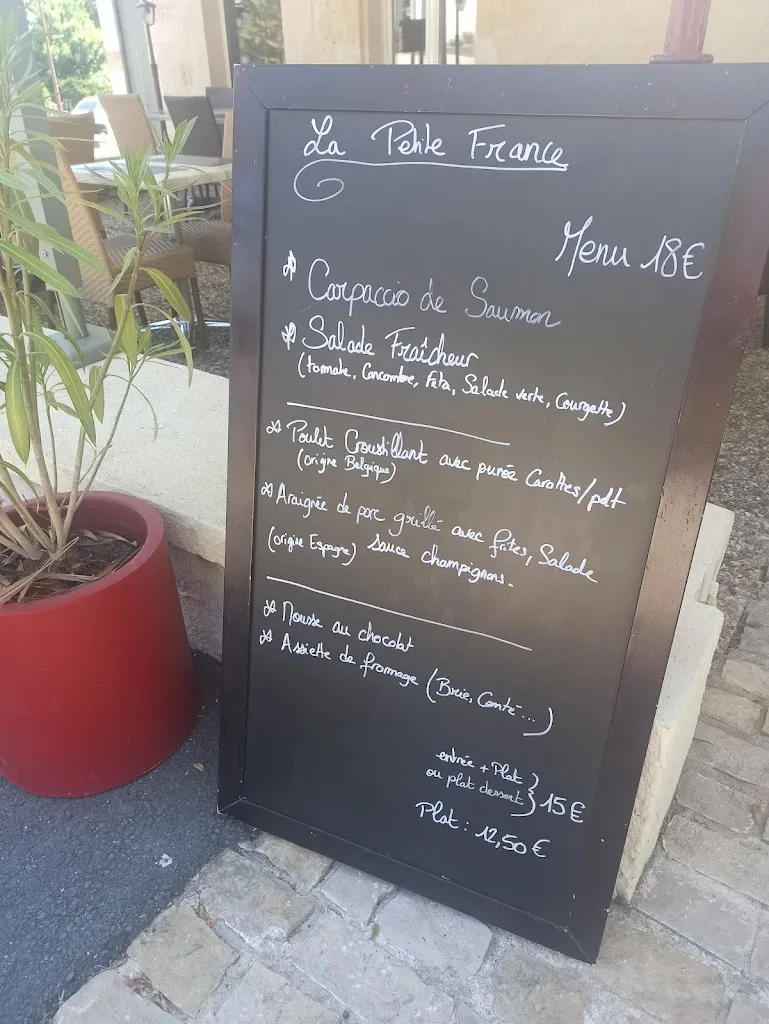 La Petite France
Menu 18€
Carpaccio de Saumon
Salade Fraîcheur
(tomate, Concombre, Feta, Salade verte, Courgette)
Poulet Croustillant avec purée Carottes/pdt
(origine Belgique)
Araignée de porc grillé avec frites, Salade
(origine Espagne) sauce champignons.
Mousse au chocolat
Assiette de fromage (Brie, Comté...)
entrée + Plat
ou plat dessert } 15€
Plat : 12,50€